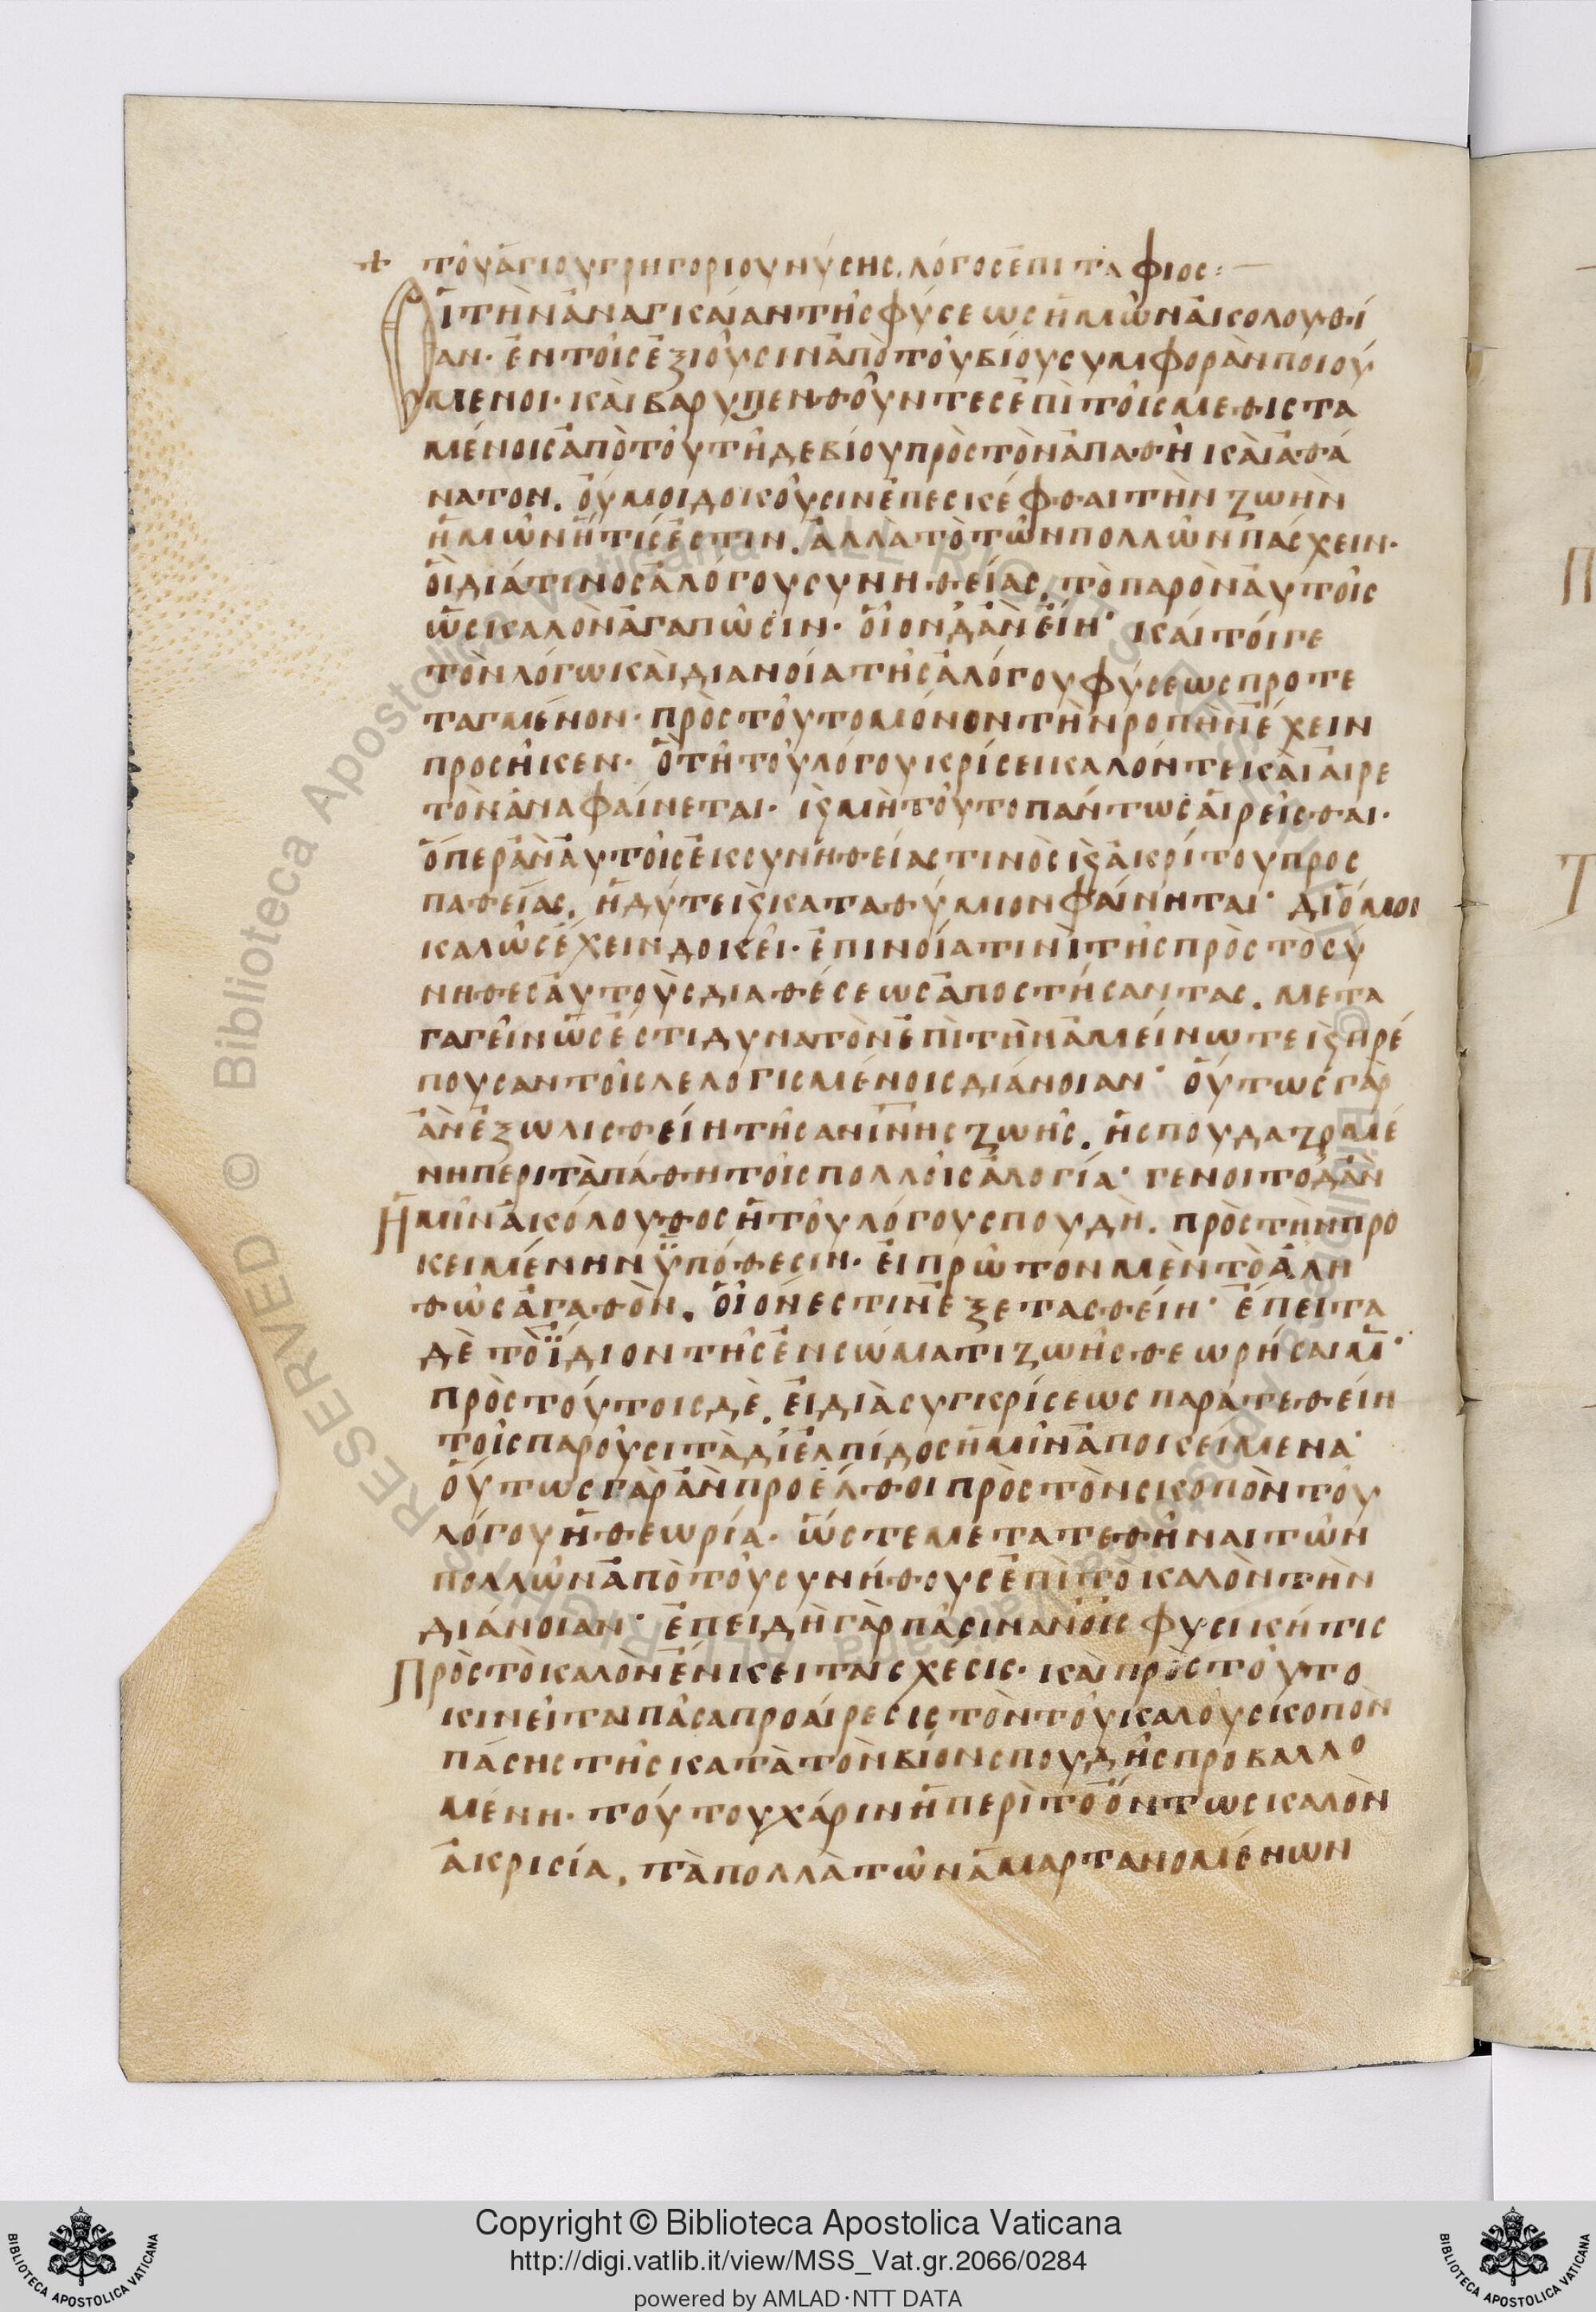 + τοῦ ἁγίου γρηγορίου νύσης. λόγος ἐπιτάφιος:
Οἱ τὴν ἀναγκαίαν τῆς φύσεως ἡμῶν ἀκολουθί
αν· ἐν τοῖς ἐξιοῦσιν ἀπὸ τοῦ βίου συμφορὰν ποιού
μενοι· καὶ βαρυπενθοῦντες ἐπὶ τοῖς μεθιστα
μένοις ἀπὸ τοῦ τῇδε βίου πρὸς τὸν ἀπαθῆ καὶ ἀθά
νατον. οὔ μοι δοκοῦσιν ἐπεσκέφθαι τὴν ζωὴν
ἡμῶν ἥτίς ἐστιν. ἀλλὰ τὸ τῶν πολλῶν πάσχειν·
οἳ διά τινος ἀλόγου συνηθείας, τὸ παρὸν αὐτοῖς
ὡς καλὸν ἀγαπῶσιν· οἷον δ' ἂν εἴη· καίτοιγε
τὸν λόγω καὶ διανοία τῆς ἀλόγου φύσεως προτε
ταγμένον· πρὸς τοῦτο μόνον τὴν ροπὴν ἔχειν
προσῆκεν· ὃ τῆ τοῦ λόγου κρίσει καλόν τε καὶ αἱρε
τὸν ἀναφαίνεται· κ μὴ τοῦτο πάντως αἱρεῖσθαι·
ὅπερ ἂν αὐτοῖς ἐκ συνηθείας τινὸς κ ἀκρίτου προς
παθείας, ἡδύ τε κ καταθύμιον φαίνηται· διό μοι
καλῶς ἔχειν δοκεῖ· ἐπινοία τινὶ τῆς πρὸς τὸ σύ
νηθες αὐτοὺς διαθέσεως ἀποστήσαντας. μετα
γαγεῖν ὡς ἔστι δυνατὸν ἐπὶ τὴν ἀμείνω τε κ πρέ
πουσαν τοῖς λελογισμένοις διάνοιαν· οὕτως γὰρ
ἂν ἐξωλισθείη τῆς ανίνης ζωῆς, ἡ σπουδαζομέ
νη περὶ τὰ πάθη τοῖς πολλοῖς ἀλογία· γένοιτο δ' ἂν
ἡμῖν ἀκόλουθος ἡ τοῦ λόγου σπουδὴ. πρὸς τὴν προ
κειμένην ὑπόθεσιν· εἰ πρῶτον μὲν τὸ ἀλη
θῶς ἀγαθὸν, οἷόν ἐστιν ἐξετασθείη· ἔπειτα
δὲ τὸ ἴδιον τῆς ἐν σώματι ζωῆς θεωρήσαιμ·
πρὸς τούτοις δὲ, εἰ διὰ συγκρίσεως παρατεθείη
τοῖς παροῦσι τὰ δι' ἐλπίδος ἡμῖν ἀποκείμενα·
οὕτως γὰρ ἂν προέλθοι πρὸς τὸν σκοπὸν τοῦ
λόγου ἡ θεωρία· ὥστε μετατεθῆναι τῶν
πολλῶν ἀπὸ τοῦ συνήθους ἐπὶ τὸ καλὸν τὴν
διάνοιαν· ἐπειδὴ γὰρ πᾶσιν ανοις φυσική τις
πρὸς τὸ καλὸν ἔνκειται σχέσις· καὶ πρὸς τοῦτο
κινεῖται πᾶσα προαίρεσις τὸν τοῦ καλοῦ σκοπὸν
πάσης τῆς κατὰ τὸν βίον σπουδῆς προβαλλο
μένη· τούτου χάριν ἡ περὶ τὸ ὄντως καλὸν
ἀκρισία, τὰ πολλὰ τῶν ἁμαρτανομένων
Copyright © Biblioteca Apostolica Vaticana
http://digi.vatlib.it/view/MSS_Vat.gr.2066/0284
powered by AMLAD·NTT DATA